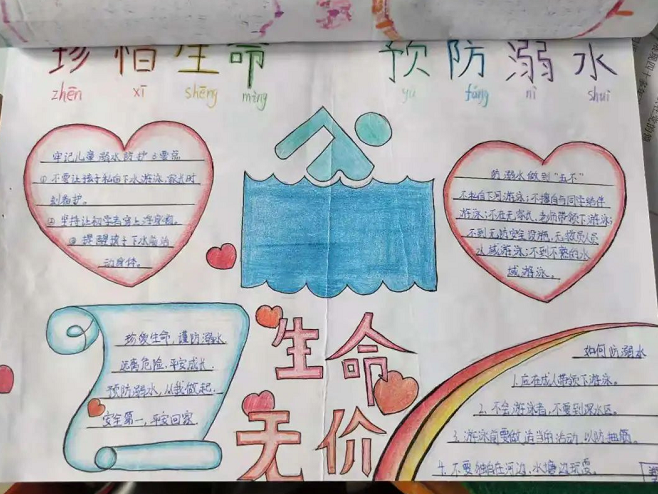 珍惜生命 预防溺水
zhēn xī shēng mìng yù fáng nì shuǐ
牢记儿童溺水防护
①不要让孩子私自下水游泳,家长时刻看护。
②坚持让初学者穿上浮身衣。
③提醒孩子下水前活动身体。
防溺水做到"五不"
不私自下河游泳;不擅自与同学结伴
游泳;不在无家长、老师带领下游泳;
不到无安全设施、无救护人员
水域游泳;不到不熟的水
域游泳。
珍爱生命,谨防溺水
远离危险,平安成长
预防溺水,从我做起
安全第一,平安回家
生命
无价
如何防溺水
1.应在成人带领下游泳。
2.不会游泳者,不要到深水区。
3.游泳前要做适当的活动,以防抽筋。
4.不要独自在河边、水塘边玩耍。